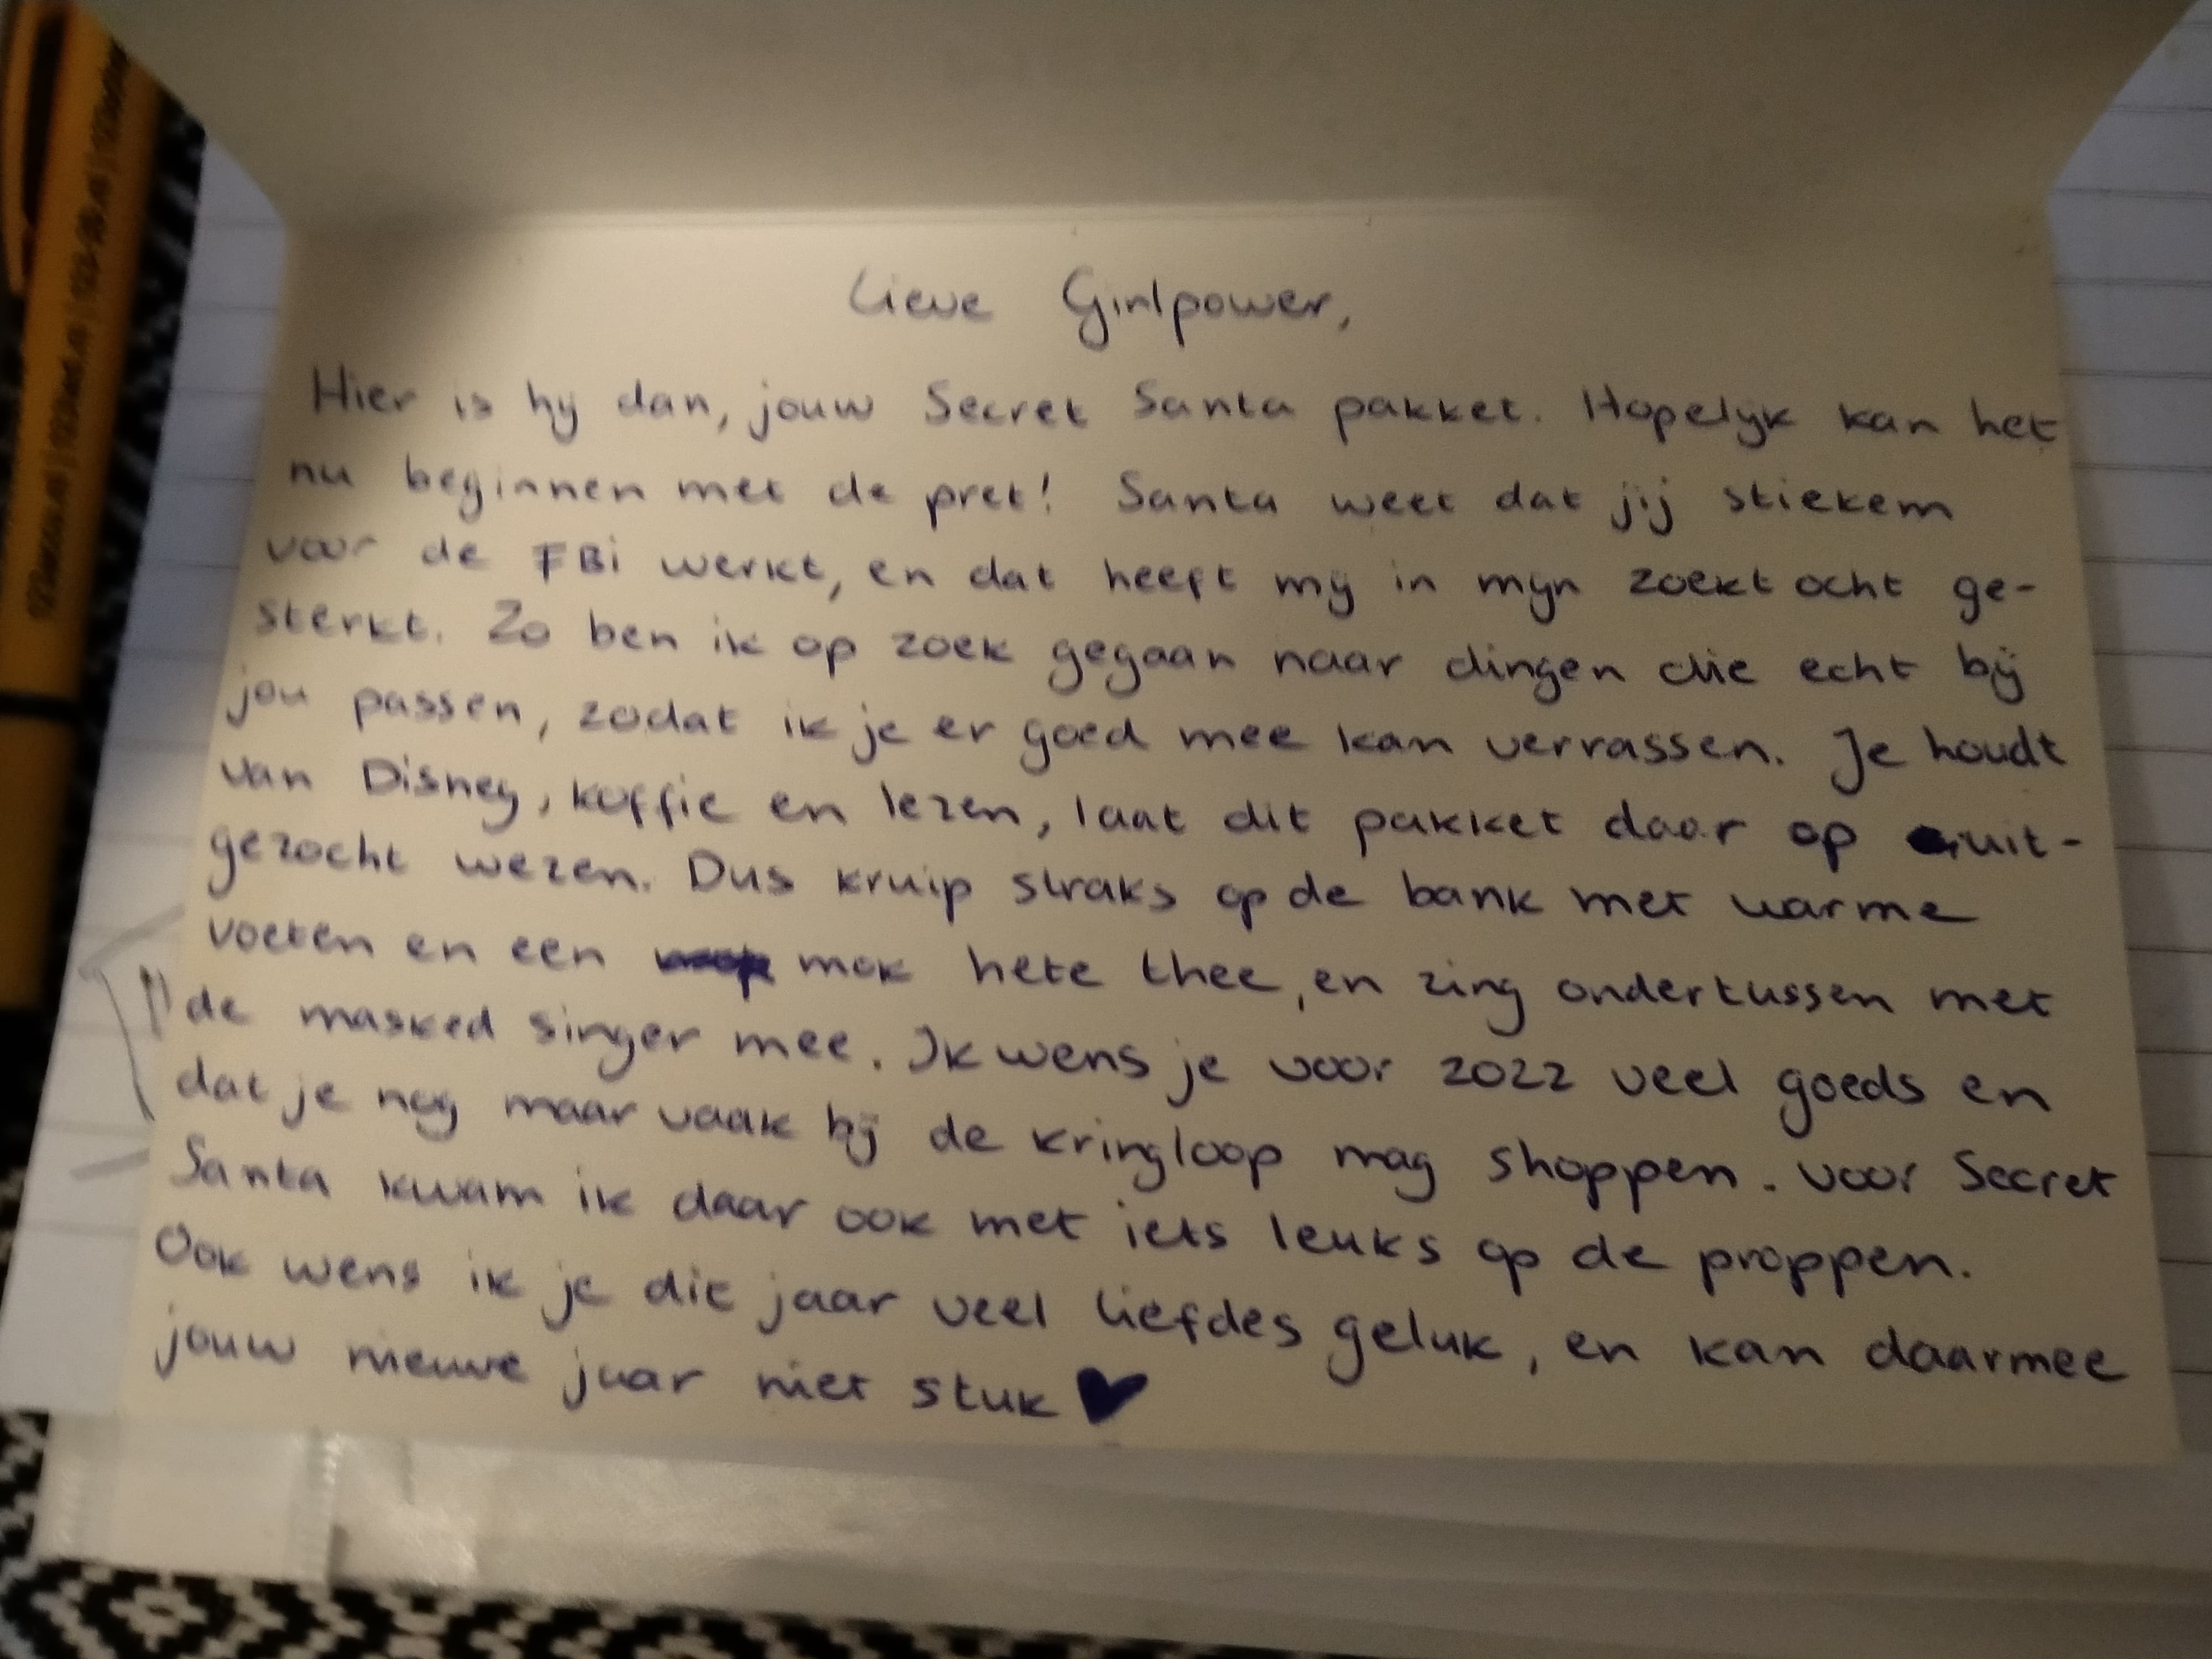 Lieve Girlpower,
Hier is hij dan, jouw Secret Santa pakket. Hopelijk kan het
nu beginnen met de pret! Santa weet dat jij stiekem
voor de FBi werkt, en dat heeft mij in mijn zoektocht ge-
sterkt. Zo ben ik op zoek gegaan naar dingen die echt bij
jou passen, zodat ik je er goed mee kan verrassen. Je houdt
van Disney, koffie en lezen, laat dit pakket daar op uit-
gezocht wezen. Dus kruip straks op de bank met warme
voeten en een mok hete thee, en zing ondertussen met
de masked singer mee. Ik wens je voor 2022 veel goeds en
dat je nog maar vaak bij de kringloop mag shoppen. Voor Secret
Santa kwam ik daar ook met iets leuks op de proppen.
Ook wens ik je dit jaar veel liefdes geluk, en kan daarmee
jouw nieuwe jaar niet stuk